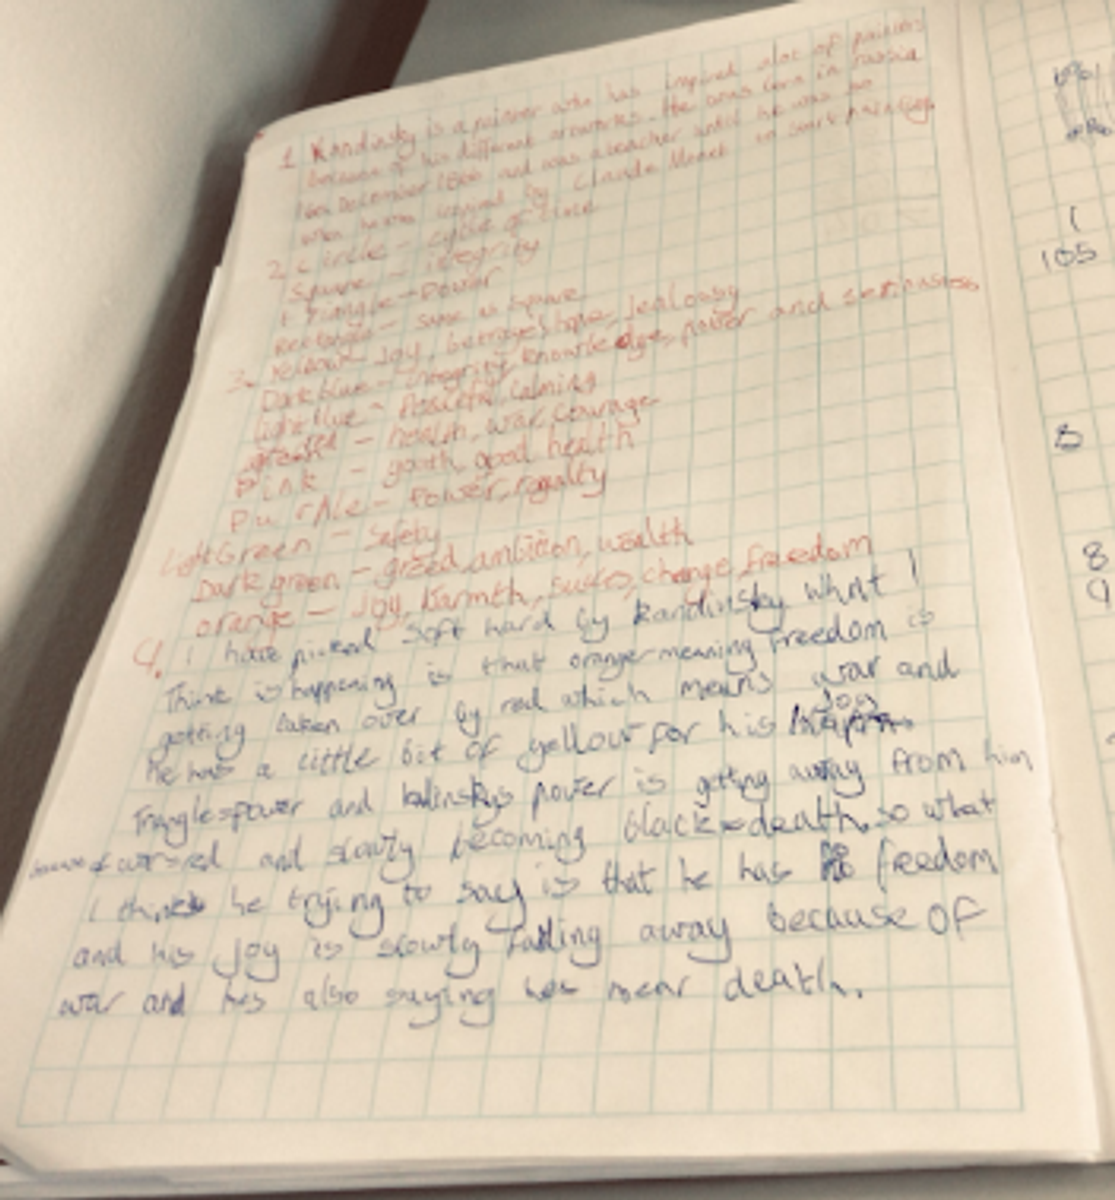 1 Kandinsky is a painter who has inspired alot of painters
because of his different artworks. He was born in russia
16th December 1866 and was a teacher until he was 30
when he was inspired by Claude Monet to start painting
2 Circle - cycle of time
Square - integrity
triangle - Power
Rectangle - same as square
3. Yellow - Joy, betrayel, hope, Jealousy
Dark blue - integrity knowledge, power and
light blue - Peaceful, Calming
red - health, war, courage
Pink - youth, good health
Purple - Power, royalty
Light Green - Safety
Dark green - greed, ambition, wealth
orange - Joy, Warmth, succes, change, freedom
4. I have picked Soft hard by Kandinsky what I
Think is happening is that orange meaning Freedom is
getting taken over by red which means war and
He has a little bit of yellow for his Joy
Triangle=power and power is getting away from him
because of war=red and slowly becoming black=death, so what
I think he trying to say is that he has freedom
and his Joy is slowly falling away because of
war and hes also saying hes near death.
1
105
8
8
9